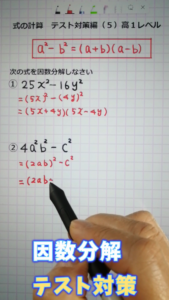 式の計算 テスト対策編（5）高1レベル
a² - b² = (a+b)(a-b)
次の式を因数分解しなさい
① 25x² - 16y²
= (5x)² - (4y)²
= (5x+4y)(5x-4y)
② 4a²b² - c²
= (2ab)² - c²
= (2ab
因数分解
テスト対策